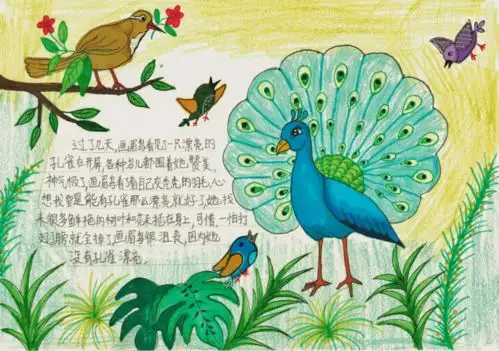 过了几天,画眉鸟看见了一只漂亮的
孔雀在开屏,各种幼儿都围着她赞美,
神气极了,画眉鸟看看自己灰秃秃的羽毛,心
想我要是能有孔雀那么漂亮就好了,她找
来很多鲜艳的树叶和花夹插在身上,可惜,一拍打
翅膀就全掉了,画眉鸟很沮丧,因为她
没有孔雀漂亮。